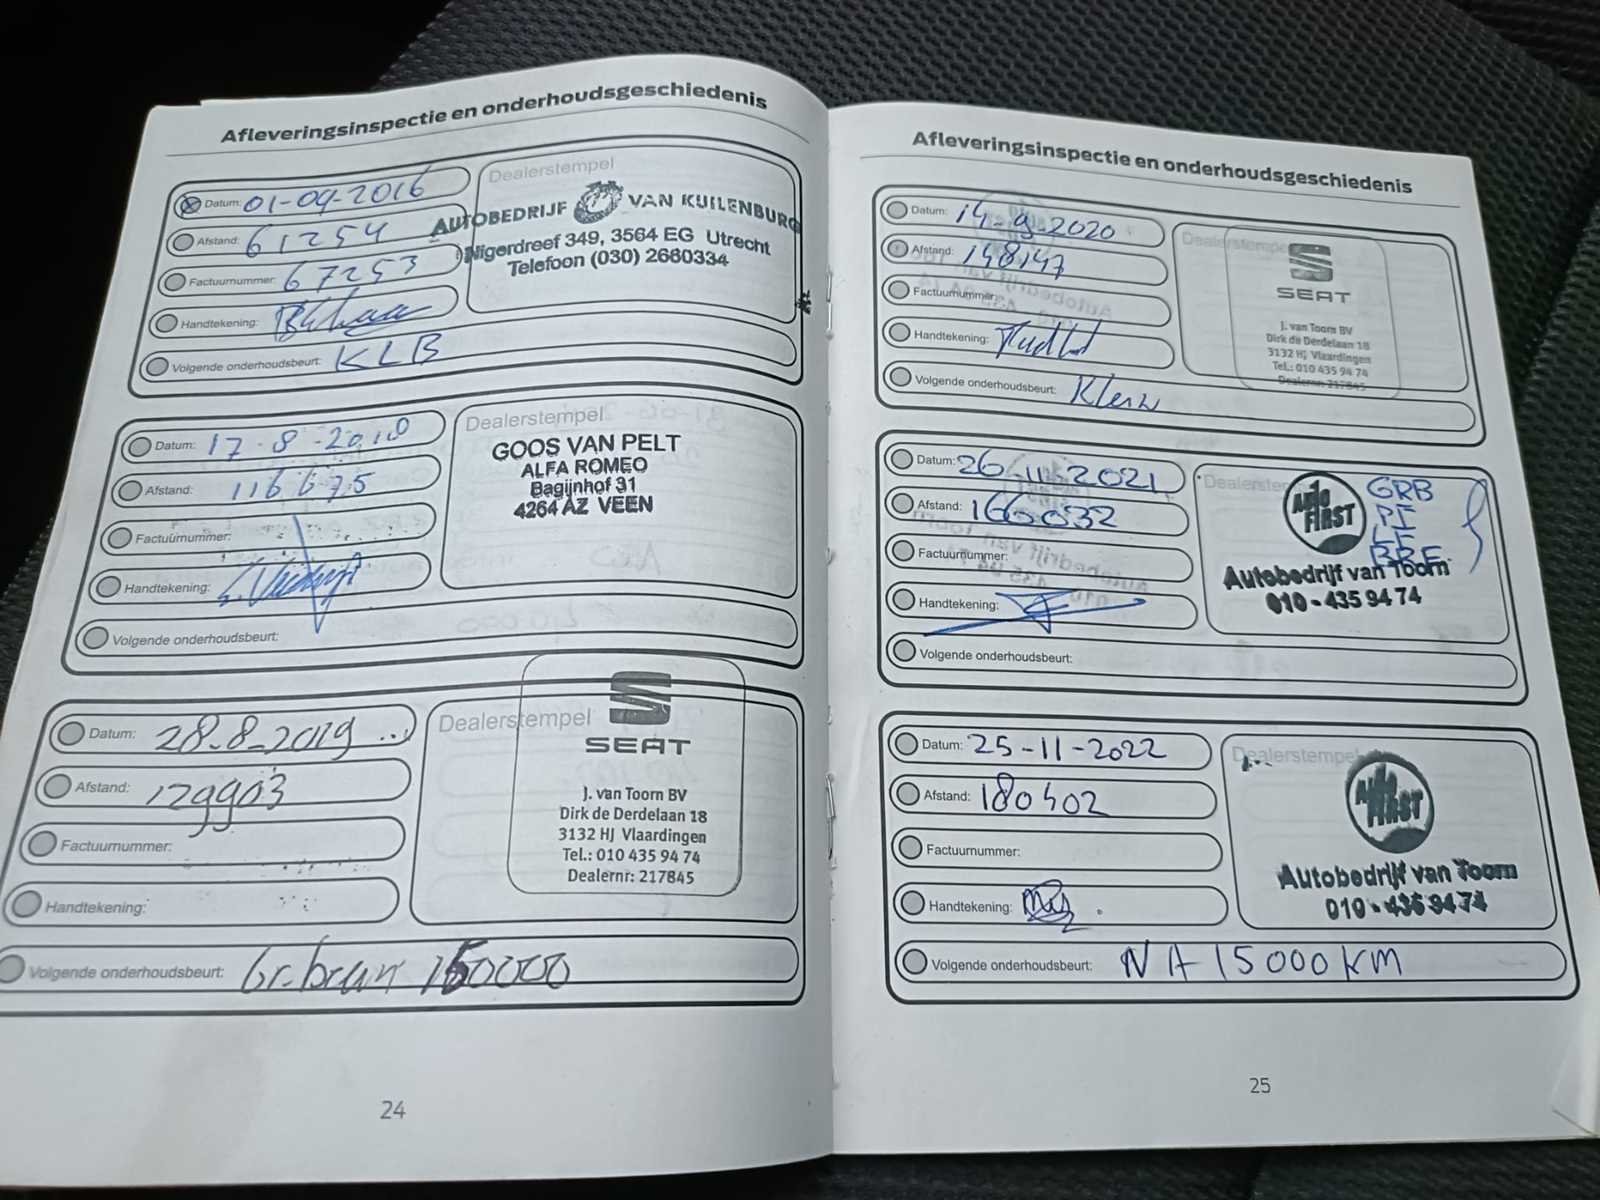 Afleveringsinspectie en onderhoudsgeschiedenis
Datum: 01-09-2016
Afstand: 61254
Factuurnummer: 67253
Handtekening:
Volgende onderhoudsbeurt: KLB
Dealerstempel
AUTOBEDRIJF VAN KUILENBURG
Nigerdreef 349, 3564 EG Utrecht
Telefoon (030) 2680334
Datum: 17-8-2018
Afstand: 116675
Factuurnummer:
Handtekening:
Volgende onderhoudsbeurt:
Dealerstempel
GOOS VAN PELT
ALFA ROMEO
Bagijnhof 31
4264 AZ VEEN
Datum: 28-8-2019
Afstand: 129903
Factuurnummer:
Handtekening:
Volgende onderhoudsbeurt: Gr. beurt 150000
Dealerstempel
SEAT
J. van Toorn BV
Dirk de Derdelaan 18
3132 HJ Vlaardingen
Tel.: 010 435 94 74
Dealernr: 217845
24
Afleveringsinspectie en onderhoudsgeschiedenis
Datum: 14-9-2020
Afstand: 148147
Factuurnummer:
Handtekening:
Volgende onderhoudsbeurt: Klein
Dealerstempel
SEAT
J. van Toorn BV
Dirk de Derdelaan 18
3132 HJ Vlaardingen
Tel.: 010 435 94 74
Dealernr: 217845
Datum: 26-11-2021
Afstand: 166032
Factuurnummer:
Handtekening:
Volgende onderhoudsbeurt:
Dealerstempel
AUTO FIRST
GRB
PF
LF
BRF
Autobedrijf van Toorn
010 - 435 94 74
Datum: 25-11-2022
Afstand: 180402
Factuurnummer:
Handtekening:
Volgende onderhoudsbeurt: NA 15000KM
Dealerstempel
AUTO FIRST
Autobedrijf van Toorn
010 - 435 94 74
25